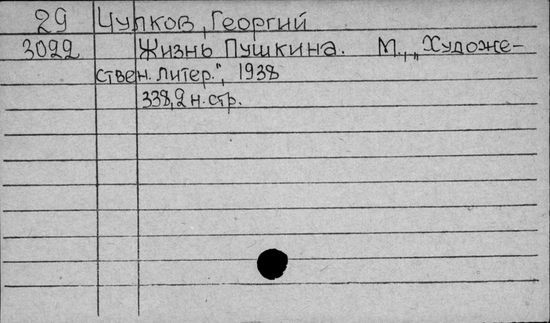 29 Чулков, Георгий
3022 Жизнь Пушкина. М., „Художе-
ствен. Литер.", 1938
338,2 н. стр.